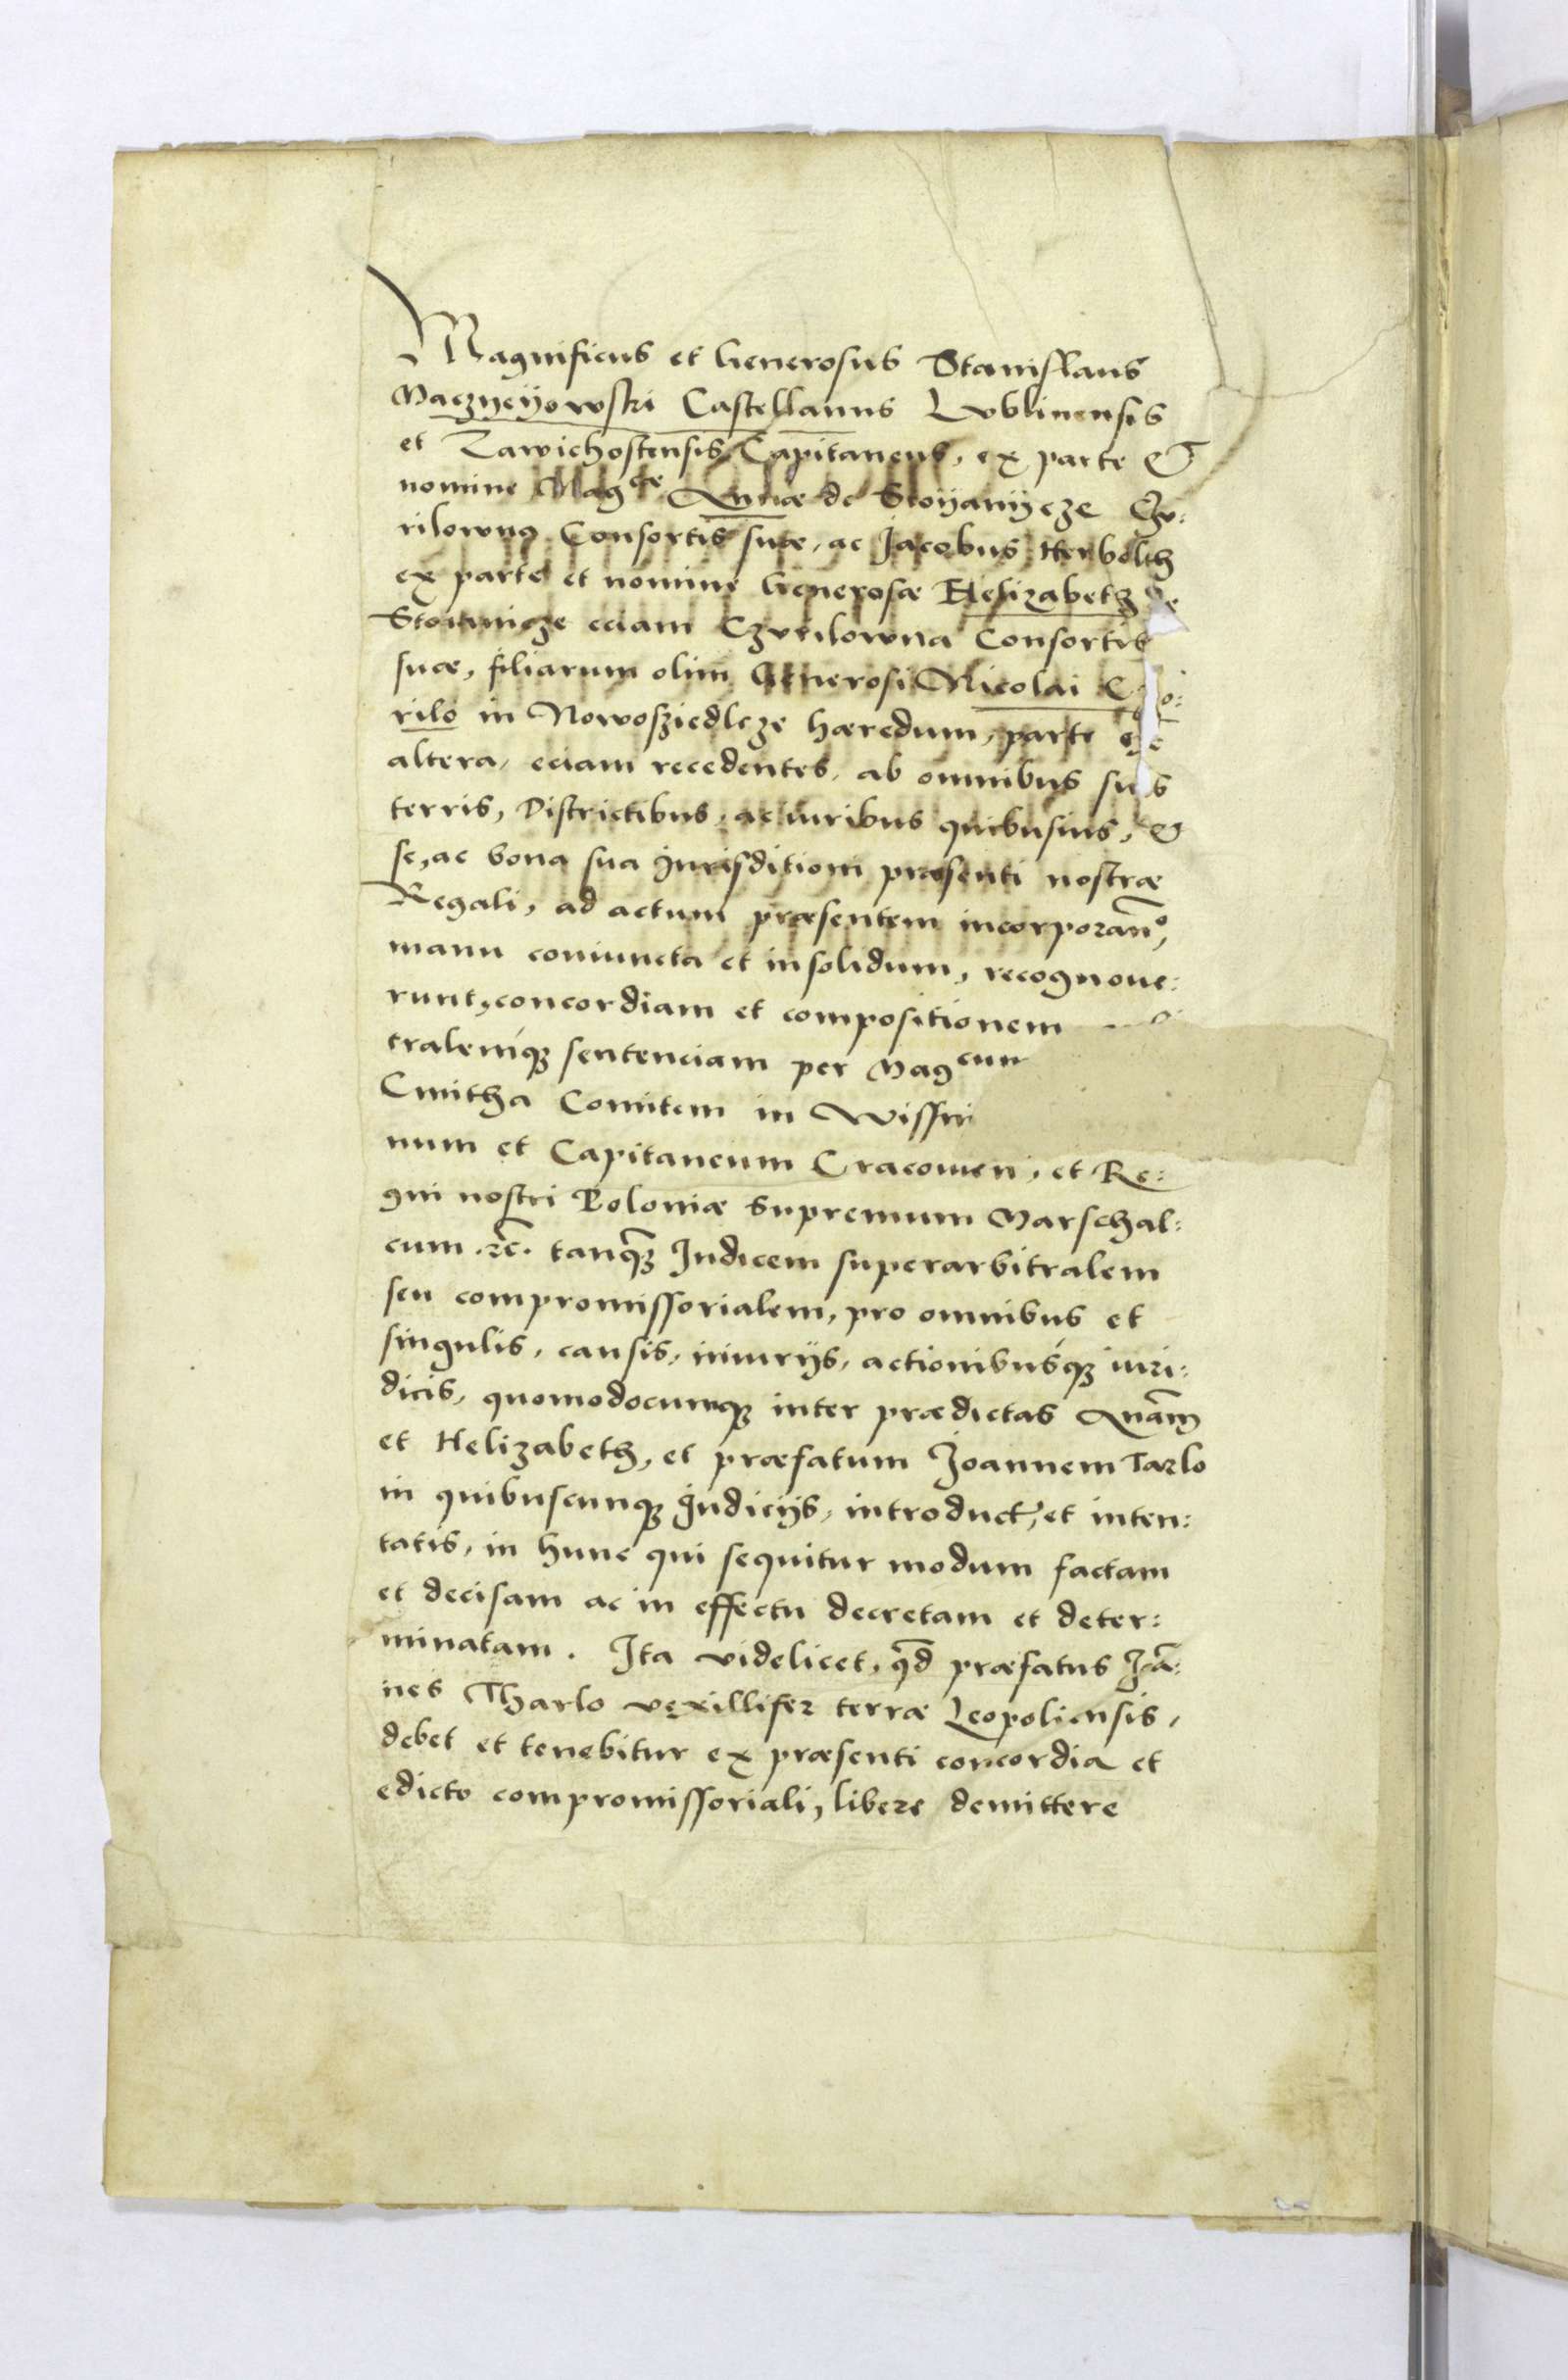 Magnificus et Generosus Stanislaus
Maczyeyowski Castellanus Lublinensis
et Zawichostensis Capitaneus, ex parte &
nomine Mag^cae Annae de Stoyanycze Czu:
rilowna Consortis suae, ac Jacobus Herbolth
ex parte et nomine Generosae Helizabeth de
Stoianicze eciam Czurilowna Consortis
suae, filiarum olim Generosi Nicolai
rilo in Nowosziedlcze haeredum, parte ex
altera, eciam recedentes, ab omnibus suis
terris, Districtibus, ac iuribus quibusuis, &
se, ac bona sua Jurisditioni praesenti nostrae
Regali, ad actum praesentem incorporan°,
manu coniuncta et insolidum, recognoue:
runt, concordiam et compositionem
tralemq̃ sentenciam per Mag^cum
Cmitha Comitem in Wissni
num et Capitaneum Cracouien, et Re:
gni nostri Poloniae Supremum Marschal:
cum .rc̃. tanq̃ Judicem superarbitralem
seu compromissorialem, pro omnibus et
singulis, causis, iniurijs, actionibusq̃ iuri:
dicis, quomodocumq̃ inter praedictas Annam
et Helizabeth, et praefatum Joannem Tarlo
in quibuscunq̃ Judicijs, introduct, et inten:
tatis, in hunc qui sequitur modum factam
et decisam ac in effectu decretam et deter:
minatam. Ita videlicet, qd̃ praefatus Joã:
nes Tharlo vexillifer terrae Leopoliensis,
debet et tenebitur ex praesenti concordia et
edicto compromissoriali, libere demittere